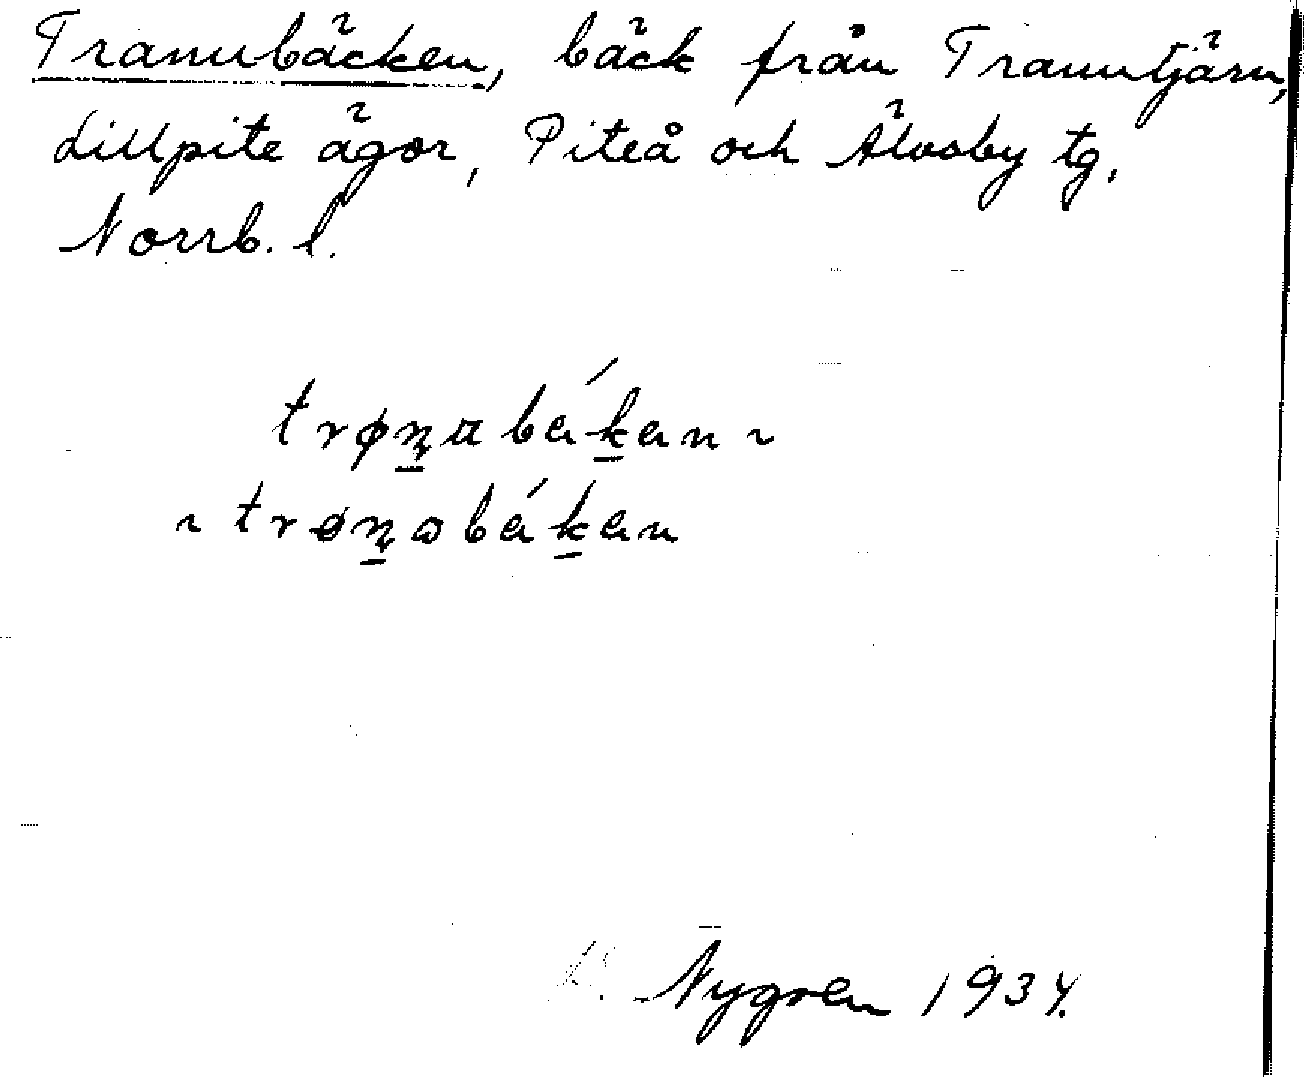 Tranubäcken, bäck från Tranutjärn,
Lillpite ägor, Piteå och Älvsby tg,
Norrb. l.
Nygren 1934.